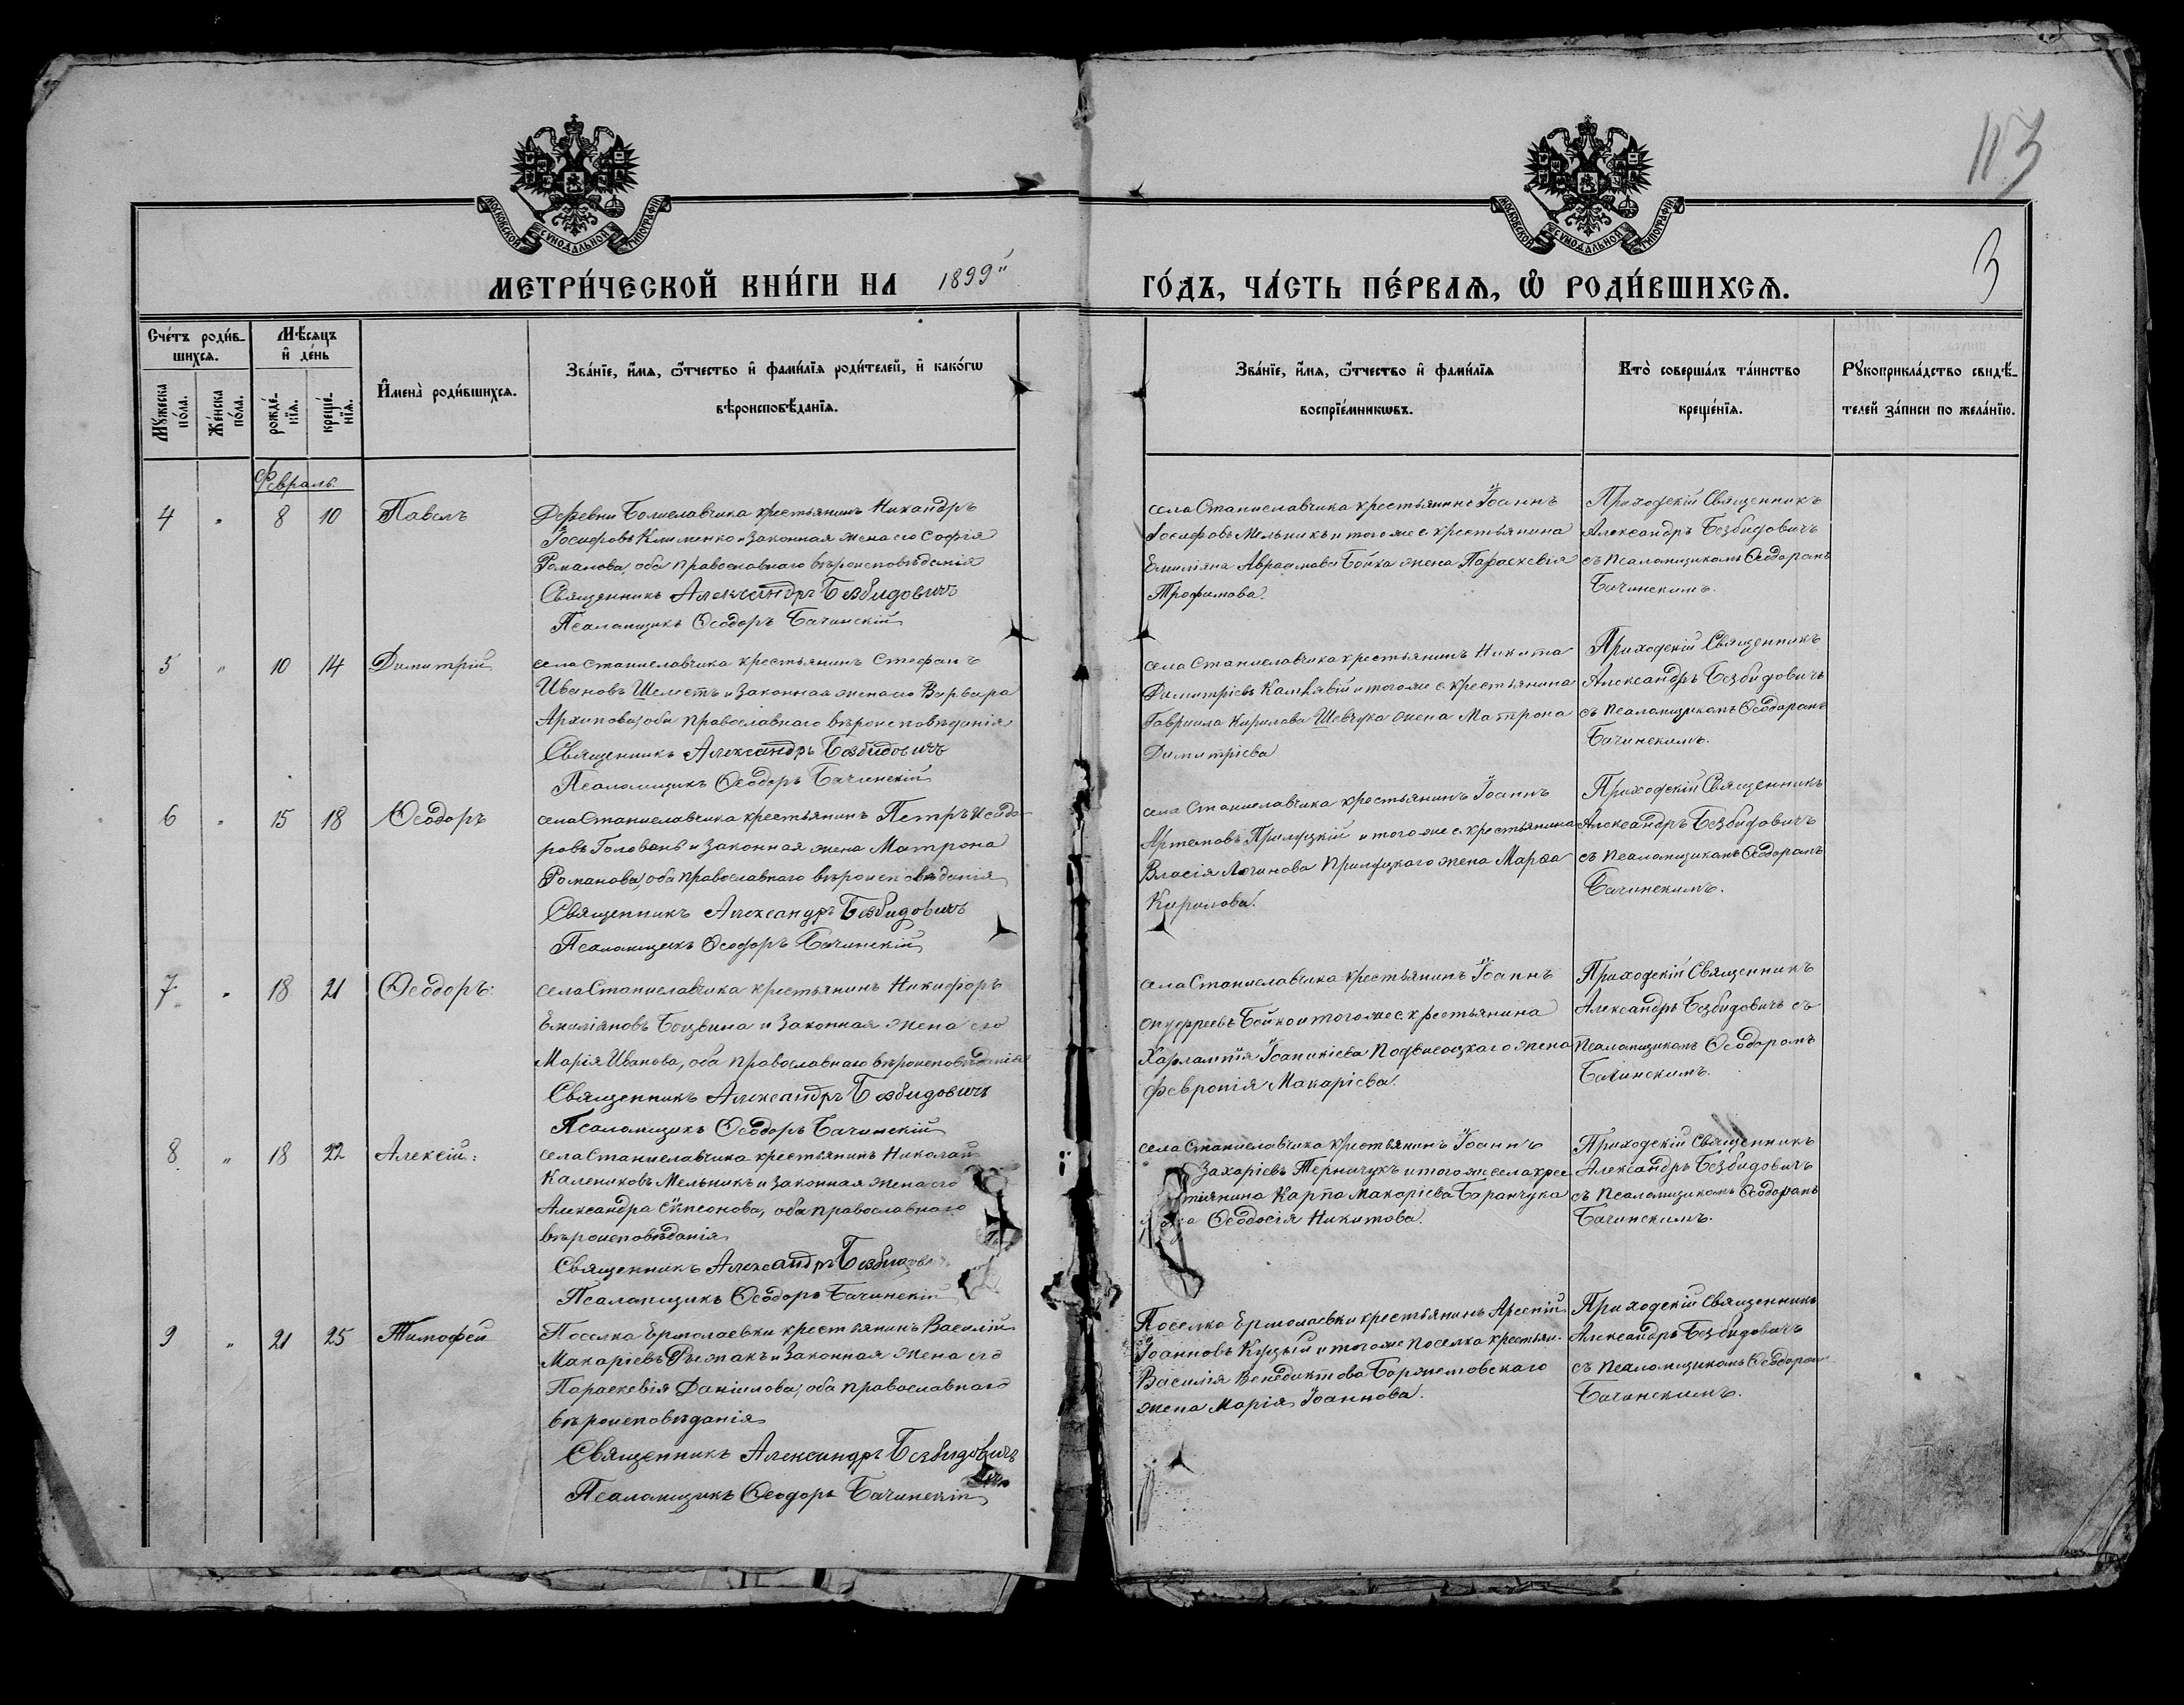 113
3
МОСКОВСКОЙ СУНОДАЛЬНОЙ ТИПОГРАФІИ
МОСКОВСКОЙ СУНОДАЛЬНОЙ ТИПОГРАФІИ
МЕТРИ́ЧЕСКОЙ КНИ́ГИ НА 1899 ГО́ДЪ, ЧА́СТЬ ПЕ́РВАѦ, Ѡ҆ РОДИ́ВШИХСѦ.
Сче́тъ роди́в-
шихсѧ.
Мꙋ́жеска по́ла.
Же́нска по́ла.
Мѣ́сѧцъ
и҆ де́нь
рожде́-
нїѧ.
креще́-
нїѧ.
И҆мена̀ роди́вшихсѧ.
Зва́нїе, и҆́мѧ, ѻ҆́тчество и҆ фами́лїѧ роди́телей, и҆ како́гѡ
вѣроисповѣ́данїѧ.
Зва́нїе, и҆́мѧ, ѻ҆́тчество и҆ фами́лїѧ
воспрїе́мникѡвъ.
Кто̀ соверша́лъ та́инство
креще́нїѧ.
Рꙋкоприкла́дство свидѣ́-
телей за́писи по жела́нїю.
Февраль.
4 " 8 10 Павелъ
Деревни Болеславчика крестьянинъ Никандръ
Іосифовъ Клименко и законная жена его Софія
Романова, оба православнаго вѣроисповѣданія
Священникъ Александръ Безбидовичъ
Псаломщикъ Ѳеодоръ Бачинскій
села Станиславчика крестьянинъ Іоаннъ
Іосифовъ Мельникъ и того же с. крестьянина
Емиліяна Авраамова Бойка жена Параскевія
Трофимова.
Приходскій Священникъ
Александръ Безбидовичъ
съ псаломщикомъ Ѳеодоромъ
Бачинскимъ.
5 " 10 14 Димитрій
села Станиславчика крестьянинъ Стефанъ
Ивановъ Шеместъ и законная жена его Варвара
Архипова, оба православнаго вѣроисповѣданія
Священникъ Александръ Безбидовичъ
Псаломщикъ Ѳеодоръ Бачинскій
села Станиславчика крестьянинъ Никита
Димитріевъ и того же с. крестьянина
Гавриила Кирилова Шевчука жена Матрона
Димитріева
Приходскій Священникъ
Александръ Безбидовичъ
съ псаломщикомъ Ѳеодоромъ
Бачинскимъ.
6 " 15 18 Ѳеодоръ
села Станиславчика крестьянинъ Петръ Исидо-
ровъ Головань и законная жена Матрона
Романова, оба православнаго вѣроисповѣданія
Священникъ Александръ Безбидовичъ
Псаломщикъ Ѳеодоръ Бачинскій
села Станиславчика крестьянинъ Іоаннъ
Артемовъ Прилуцкій и того же с. крестьянина
Власія Логинова Прилуцкаго жена Марѳа
Кирилова.
Приходскій Священникъ
Александръ Безбидовичъ
съ псаломщикомъ Ѳеодоромъ
Бачинскимъ.
7 " 18 21 Ѳеодоръ:
села Станиславчика крестьянинъ Никифоръ
Емиліяновъ Боцвина и законная жена его
Марія Иванова, оба православнаго вѣроисповѣданія
Священникъ Александръ Безбидовичъ
Псаломщикъ Ѳеодоръ Бачинскій
села Станиславчика крестьянинъ Іоаннъ
Онуфреевъ Бойко и того же с. крестьянина
Харлампія Іоаникіева Подвисоцкаго жена
Февронія Макаріева.
Приходскій Священникъ
Александръ Безбидовичъ съ
псаломщикомъ Ѳеодоромъ
Бачинскимъ.
8 " 18 22 Алексій:
села Станиславчика крестьянинъ Николай
Калениковъ Мельникъ и законная жена его
Александра Симеонова, оба православнаго
вѣроисповѣданія
Священникъ Александръ Безбидовичъ
Псаломщикъ Ѳеодоръ Бачинскій
села Станиславчика крестьянинъ Іоаннъ
Захаріевъ Терничукъ и того же села крес-
тіянина Карпа Макаріева Баранчука
Ѳеодосія Никитова.
Приходскій Священникъ
Александръ Безбидовичъ
съ псаломщикомъ Ѳеодоромъ
Бачинскимъ.
9 " 21 25 Тимофей
Поселка Ермолаевки крестьянинъ Василій
Макаріевъ и законная жена его
Параскевія Даніилова, оба православнаго
вѣроисповѣданія
Священникъ Александръ Безбидовичъ
Псаломщикъ Ѳеодоръ Бачинскій
Поселка Ермолаевки крестьянинъ Арсеній
Іоанновъ Куцый и того же поселка крестьян.
Василія Венедиктова Боржемовскаго
жена Марія Іоаннова.
Приходскій Священникъ
Александръ Безбидовичъ
съ псаломщикомъ Ѳеодоромъ
Бачинскимъ.